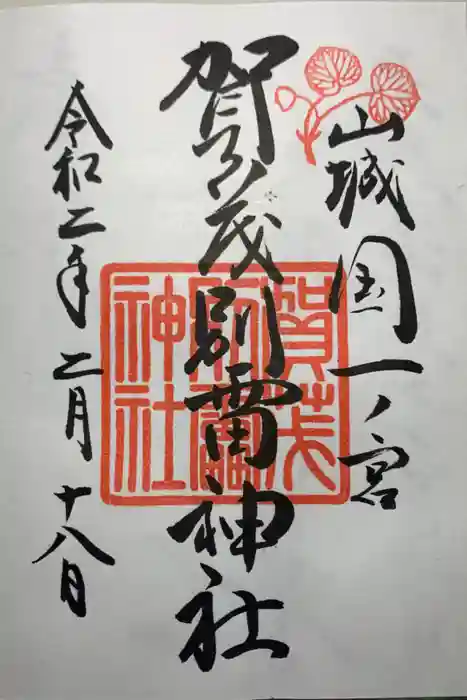 山城国一ノ宮
賀茂別雷神社
令和二年二月十八日
賀茂
別雷
神社